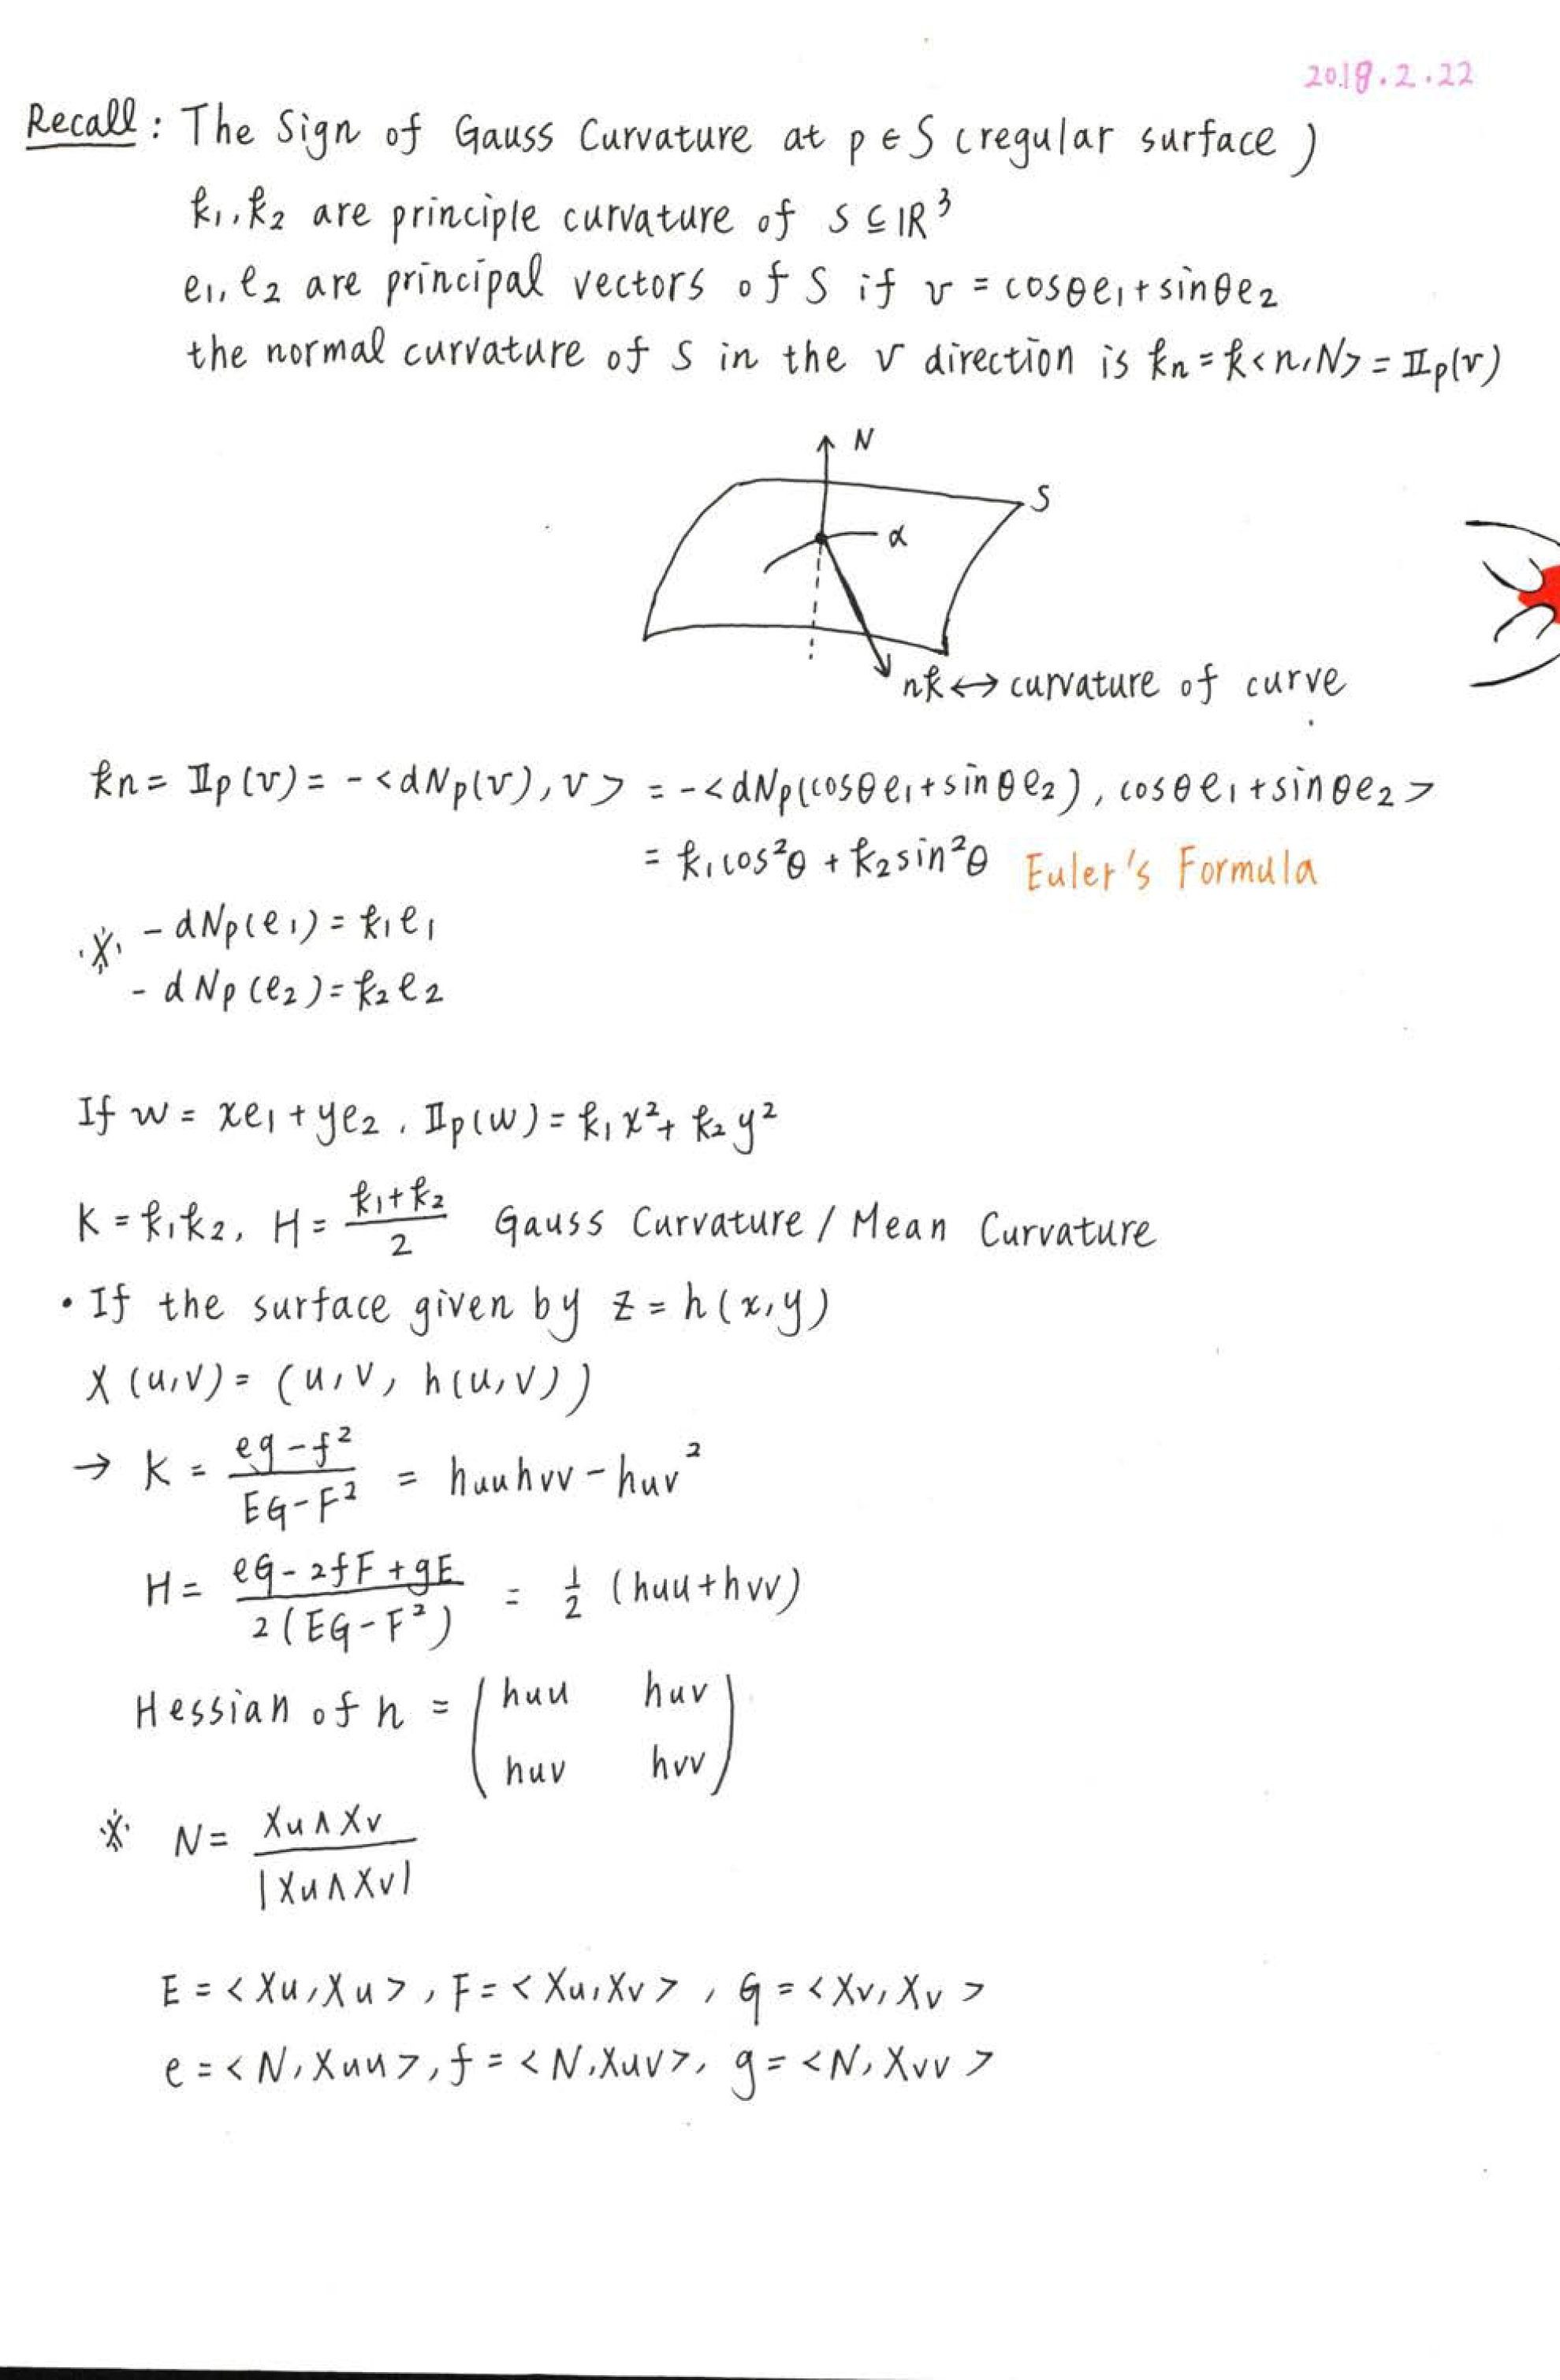 2018.2.22
Recall: The Sign of Gauss Curvature at p ∈ S (regular surface)
k₁, k₂ are principle curvature of S ⊆ ℝ³
e₁, e₂ are principal vectors of S if v = cosθe₁ + sinθe₂
the normal curvature of S in the v direction is kn = k<n, N> = Ⅱp(v)
N
S
α
nk ↔ curvature of curve
kn = Ⅱp(v) = -<dNp(v), v> = -<dNp(cosθe₁ + sinθe₂), cosθe₁ + sinθe₂>
= k₁cos²θ + k₂sin²θ Euler's Formula
※ -dNp(e₁) = k₁e₁
-dNp(e₂) = k₂e₂
If w = xe₁ + ye₂, Ⅱp(w) = k₁x² + k₂y²
K = k₁k₂, H = (k₁+k₂)/2 Gauss Curvature / Mean Curvature
• If the surface given by z = h(x,y)
X(u,v) = (u, v, h(u,v))
→ K = (eg-f²)/(EG-F²) = huuhvv - huv²
H = (eG-2fF+gE)/(2(EG-F²)) = 1/2 (huu+hvv)
Hessian of h = (huu huv
huv hvv)
※ N = Xu∧Xv/|Xu∧Xv|
E = <Xu, Xu>, F = <Xu, Xv>, G = <Xv, Xv>
e = <N, Xuu>, f = <N, Xuv>, g = <N, Xvv>